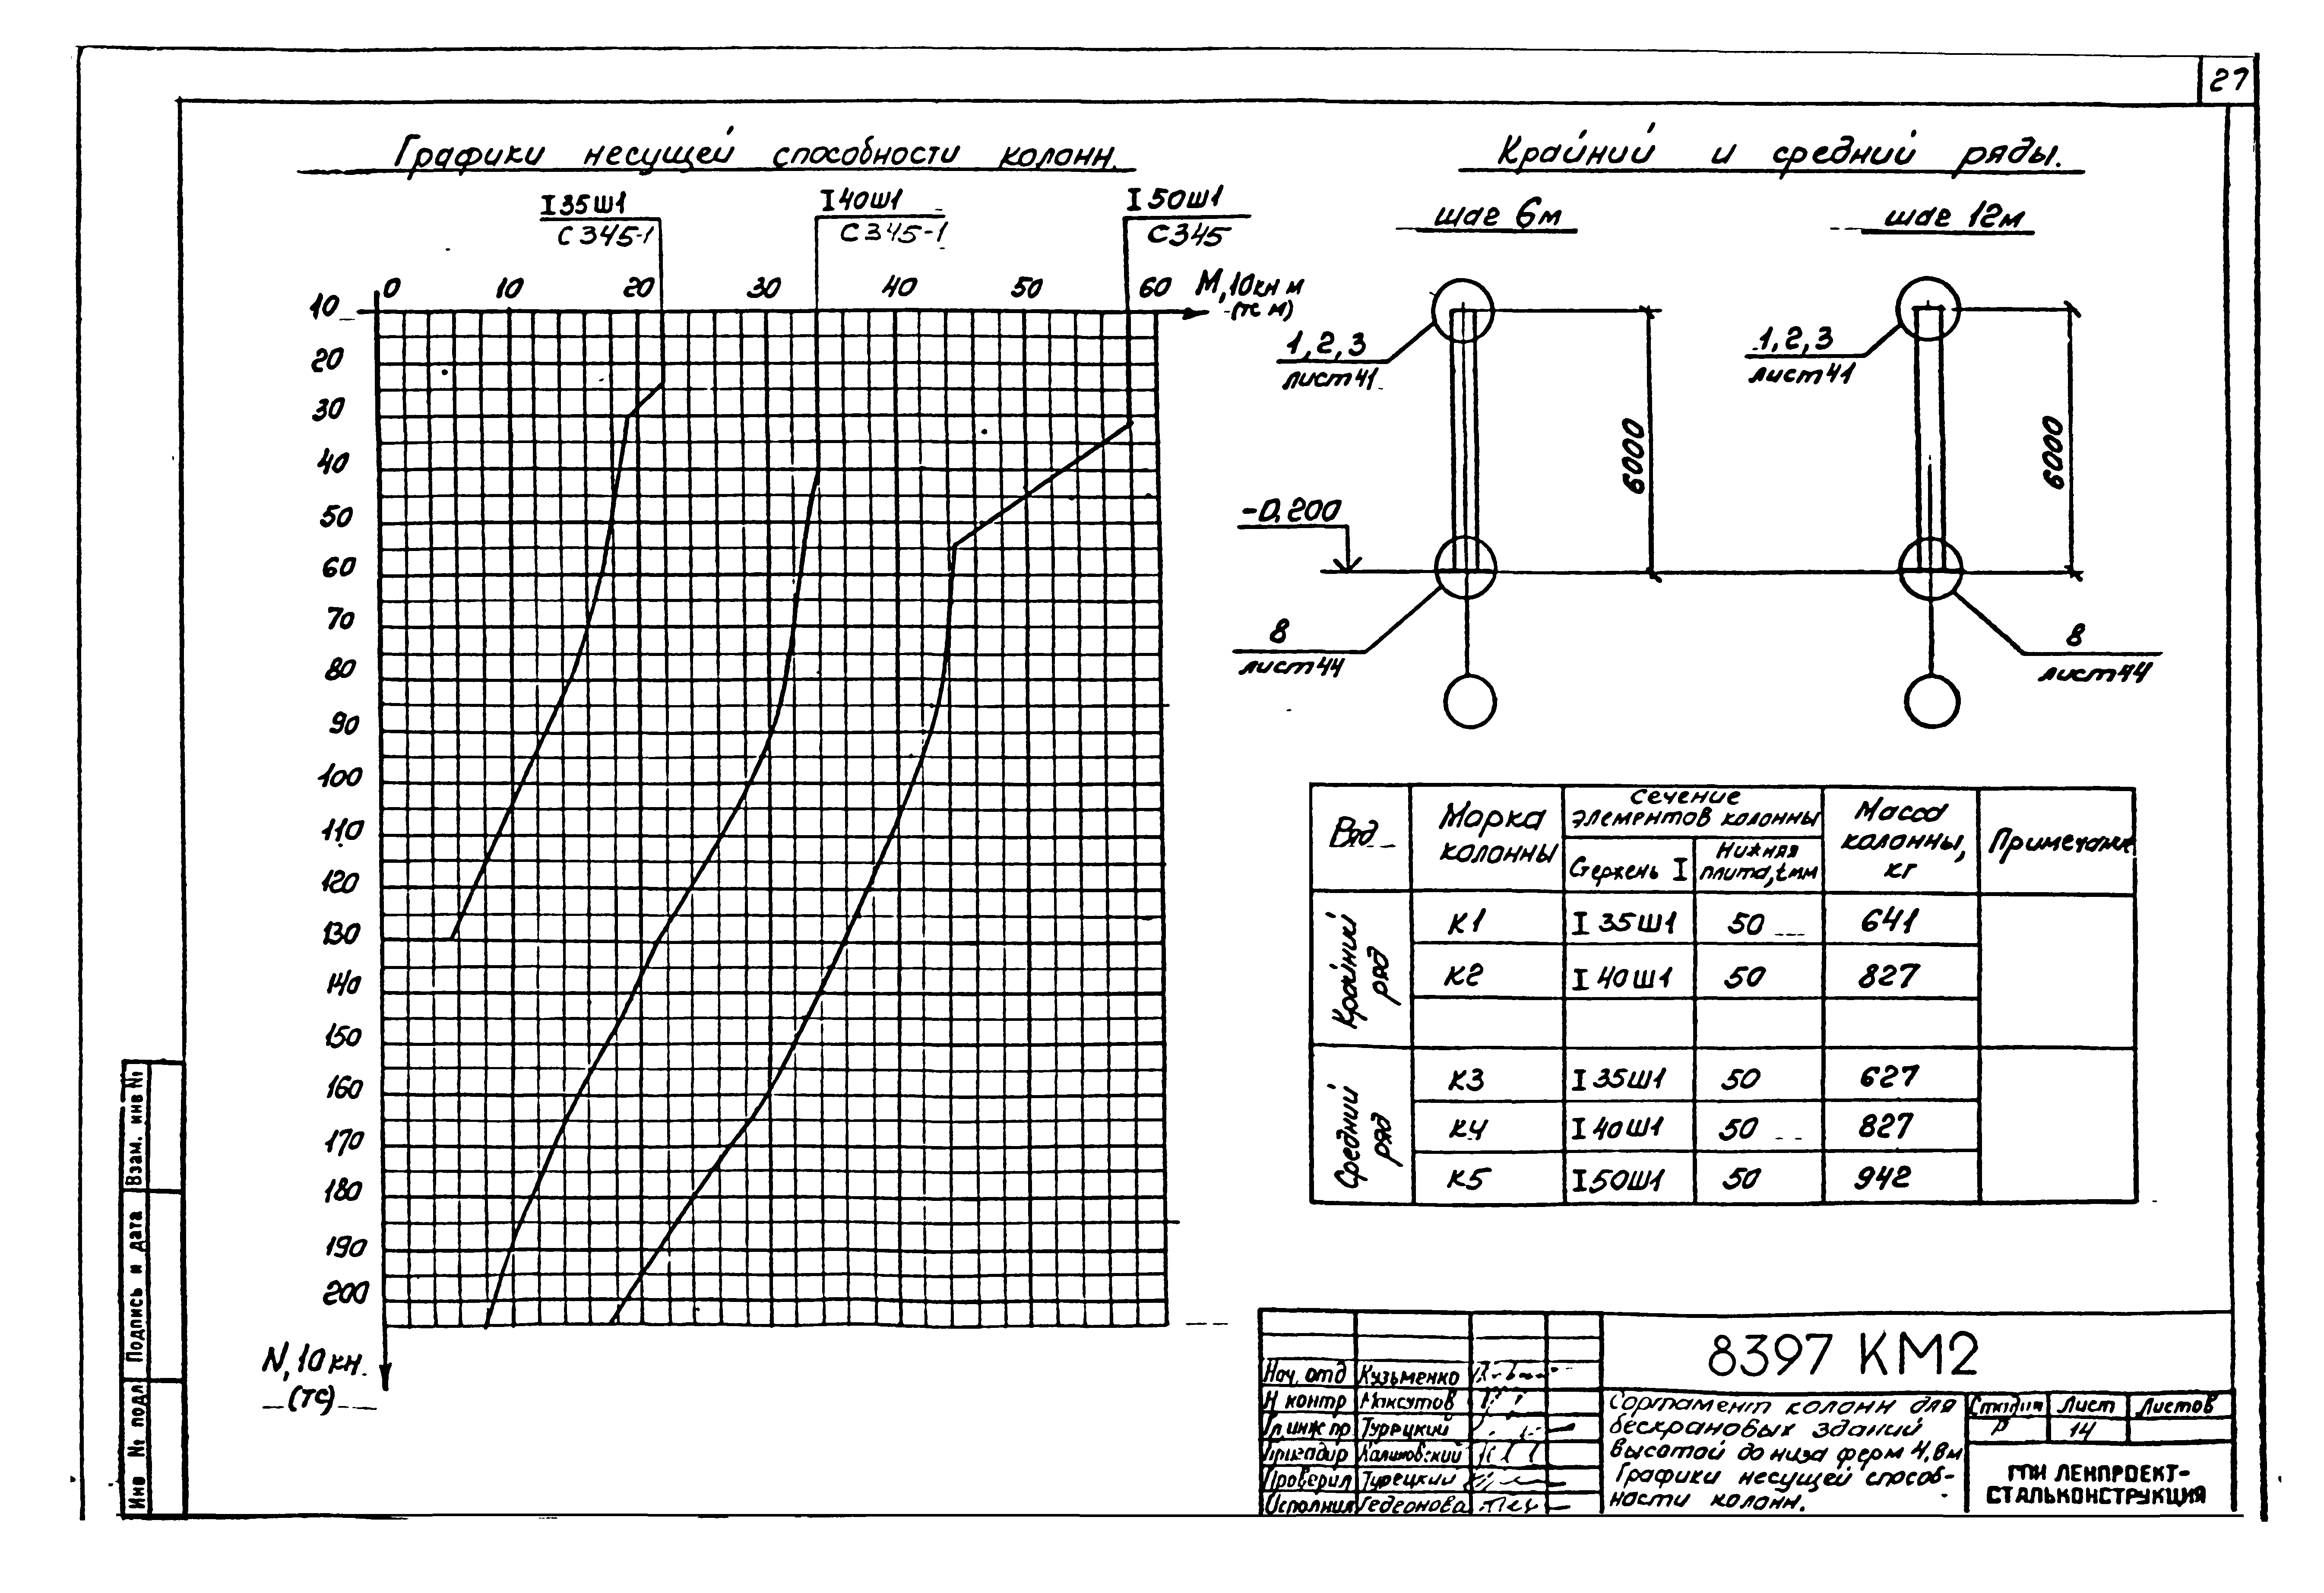 27
Графики несущей способности колонн.
Крайний и средний ряды.
I 35Ш1
С345-1
I 40Ш1
С345-1
I 50Ш1
С345
0 10 20 30 40 50 60 М, 10кн м
(тс м)
10
20
30
40
50
60
70
80
90
100
110
120
130
140
150
160
170
180
190
200
N, 10кн.
(тс)
шаг 6м
шаг 12м
1,2,3
лист 41
1,2,3
лист 41
6000
6000
-0,200
8
лист 44
8
лист 44
Ряд
Марка колонны
Сечение элементов колонны
Стержень I
Нижняя плита, t мм
Масса колонны, кг
Примечание
Крайний ряд
К1 I 35Ш1 50 641
К2 I 40Ш1 50 827
Средний ряд
К3 I 35Ш1 50 627
К4 I 40Ш1 50 827
К5 I 50Ш1 50 942
Взам. инв №
Подпись и дата
Инв № подл
Нач. отд Кузьменко
Н контр Максутов
Гл. инж пр Турецкий
Бригадир Калиновский
Проверил Турецкий
Исполнил Гедеонова
8397 КМ2
Сортамент колонн для
бескрановых зданий
высотой до низа ферм 4,8м
Графики несущей способ-
ности колонн.
Стадия Лист Листов
Р 14
ГПИ ЛЕНПРОЕКТ-
СТАЛЬКОНСТРУКЦИЯ